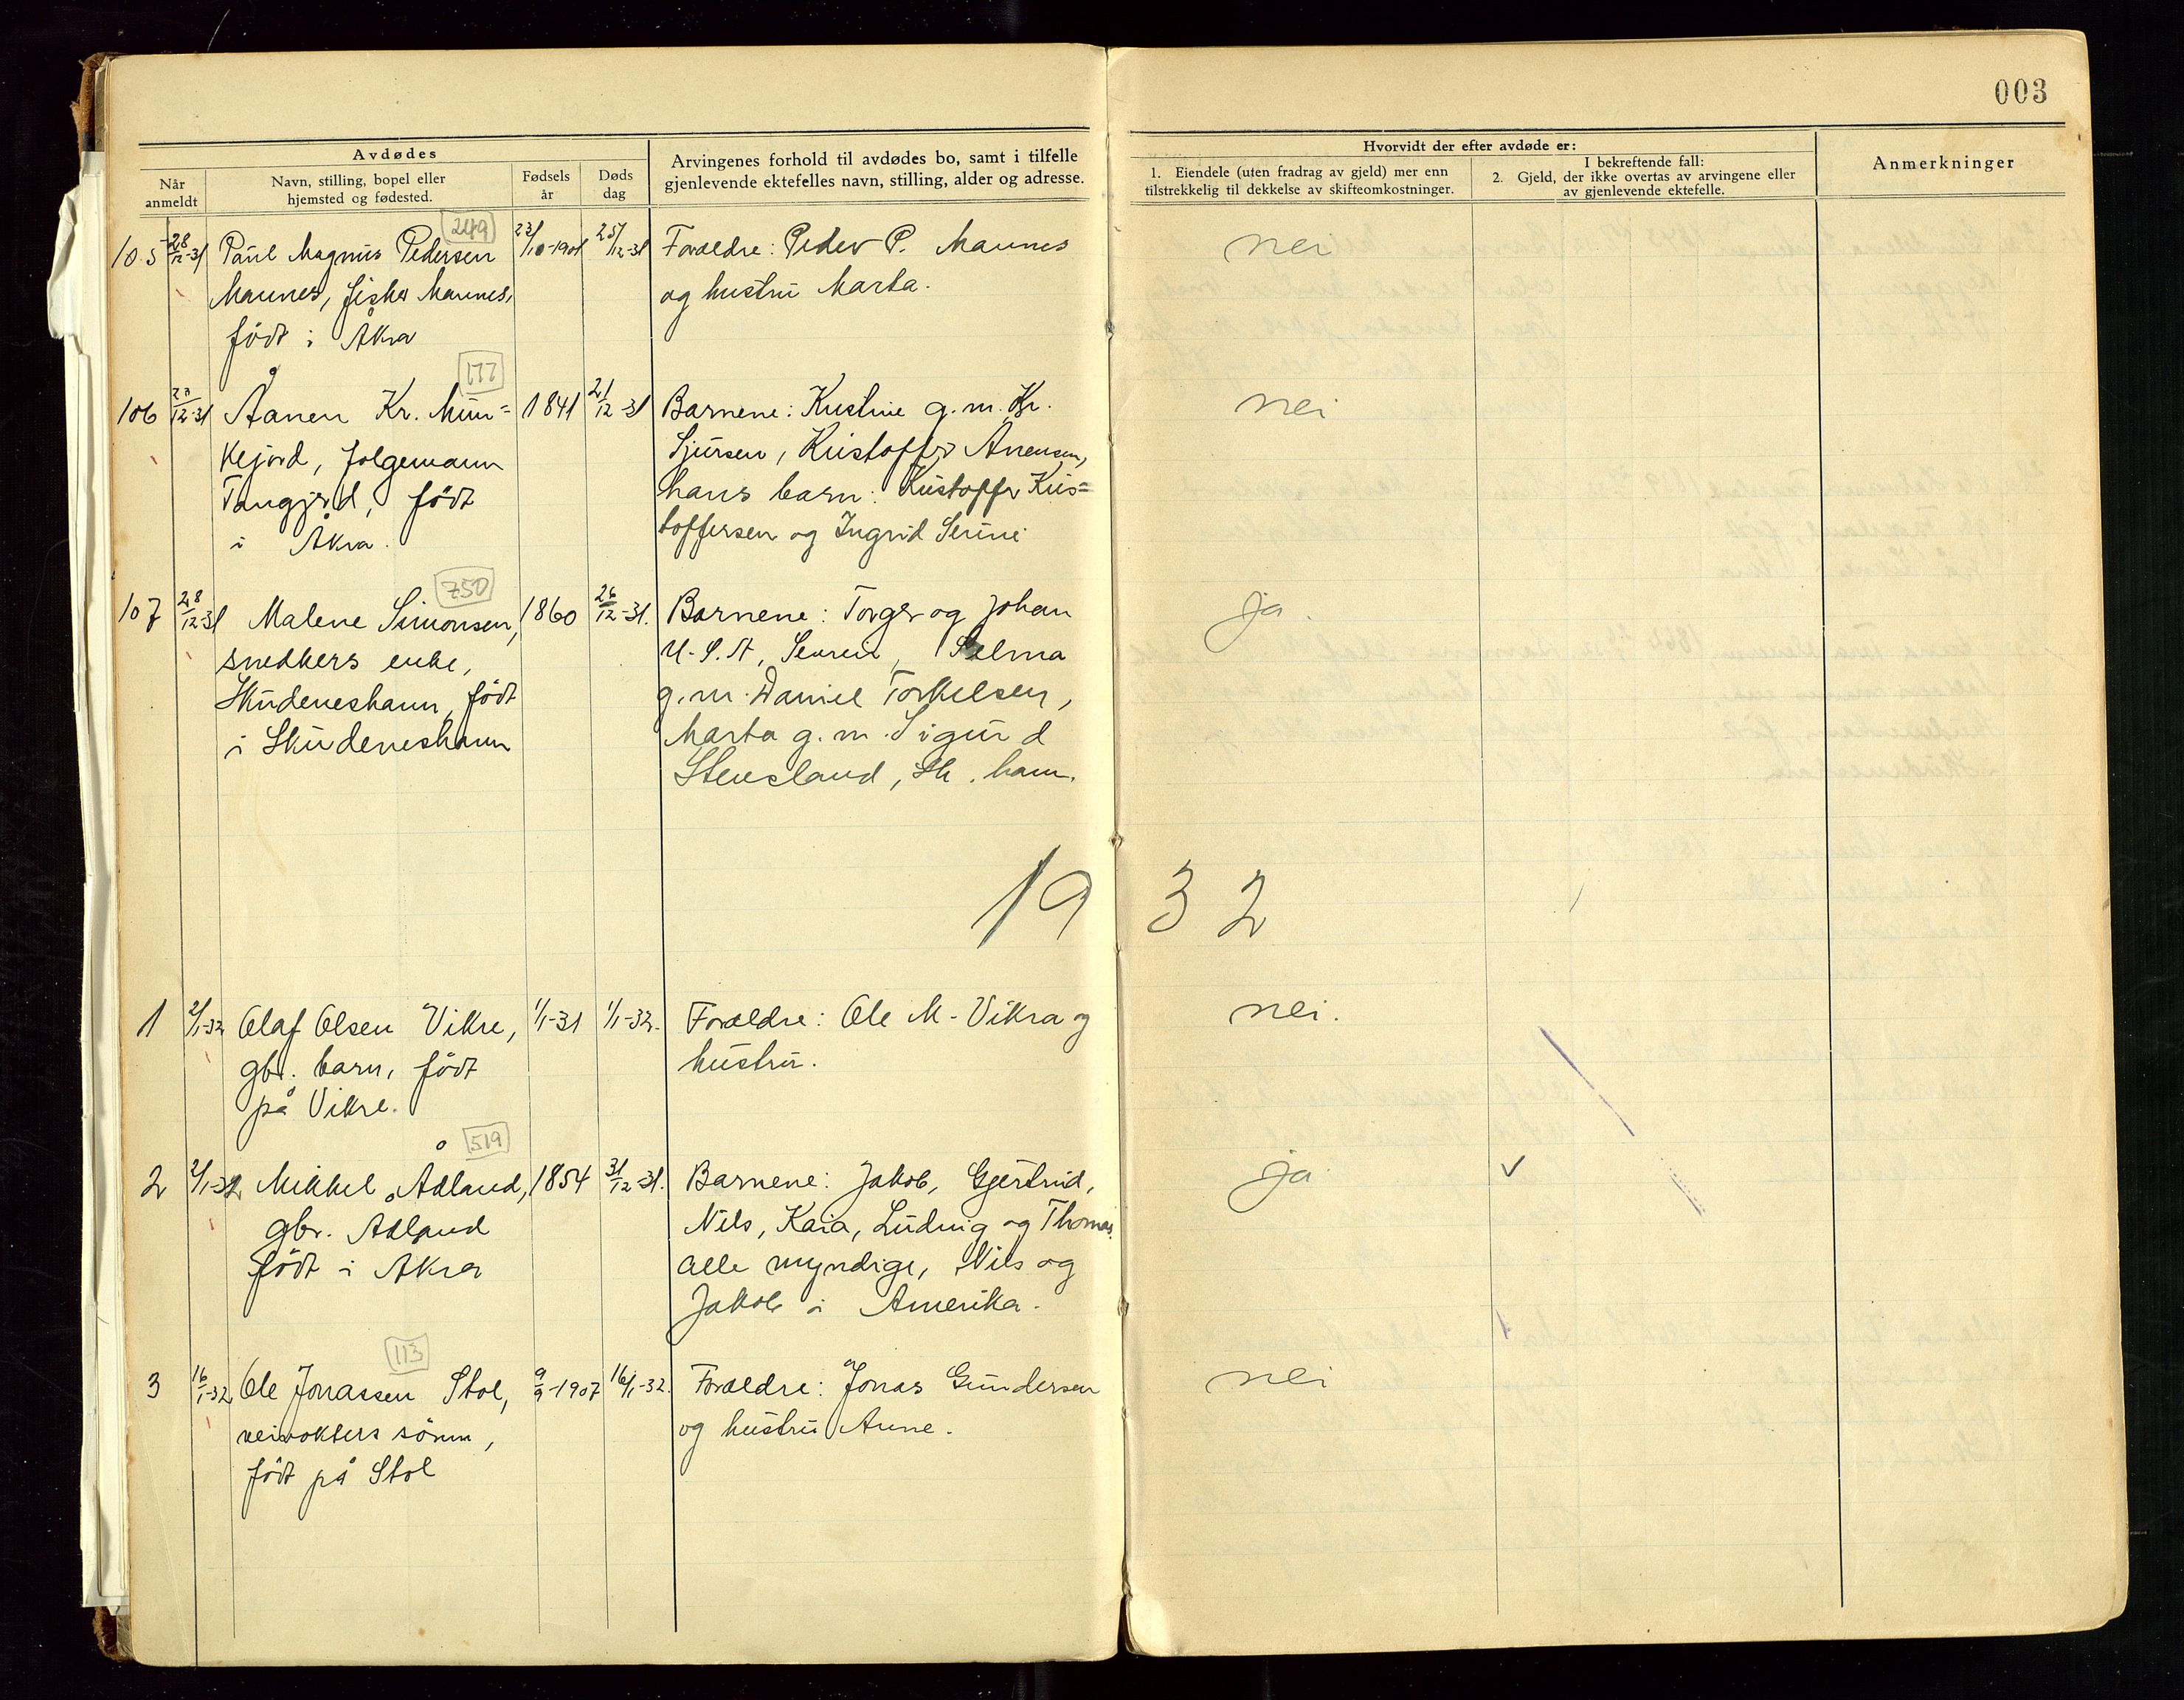 003
Avdødes
Når
anmeldt
Navn, stilling, bopel eller
hjemsted og fødested.
Fødsels
år
Døds
dag
Arvingenes forhold til avdødes bo, samt i tilfelle
gjenlevende ektefelles navn, stilling, alder og adresse.
Hvorvidt der efter avdøde er:
1. Eiendele (uten fradrag av gjeld) mer enn
tilstrekkelig til dekkelse av skifteomkostninger.
I bekreftende fall:
2. Gjeld, der ikke overtas av arvingene eller
av gjenlevende ektefelle.
Anmerkninger
249
105 28/12-31 Paul Magnus Pedersen 23/10-1901 25/12-31 Foreldre: Peder P. Mannes nei
Mannes, fisker Mannes, og hustru Marta.
født i Åkra
177
106 /12-31 Ånen Kr. Mun= 1841 21/12-31 Barnene: Kristine g.m. Kr. nei
kejord, folgemann Sjursen, Kristoffer Ånensen,
Tangjerd, født hans barn: Kristoffer Kris=
i Åkra. toffersen og Ingrid Serine
750
107 28/12-31 Malene Simonsen, 1860 26/12-31. Barnene: Torger og Johan ja.
snedkers enke, U.S.A, Severin, Selma
Skudeneshavn, født g.m. Daniel Torkelsen,
i Skudeneshavn Marta g.m. Sigurd
Stensland, Sk. havn.
1932
1 2/1-32 Olaf Olsen Vikre, 1/1-31 1/1-32. Foreldre: Ole M. Vikra og nei.
gbr. barn, født hustru.
på Vikre.
519
2 2/1-32 Mikkel Ådland, 1854 31/12-31. Barnene: Jakob, Gjertrud, ja ✓
gbr. Ådland Nils, Kaia, Ludvig og Thomas,
født i Åkra alle myndige, Nils og
Jakob i Amerika.
113
3 16/1-32 Ole Jonassen Stol, 9/9-1907 16/1-32. Foreldre: Jonas Gundersen nei
veivokters sønn, og hustru Anne.
født på Stol